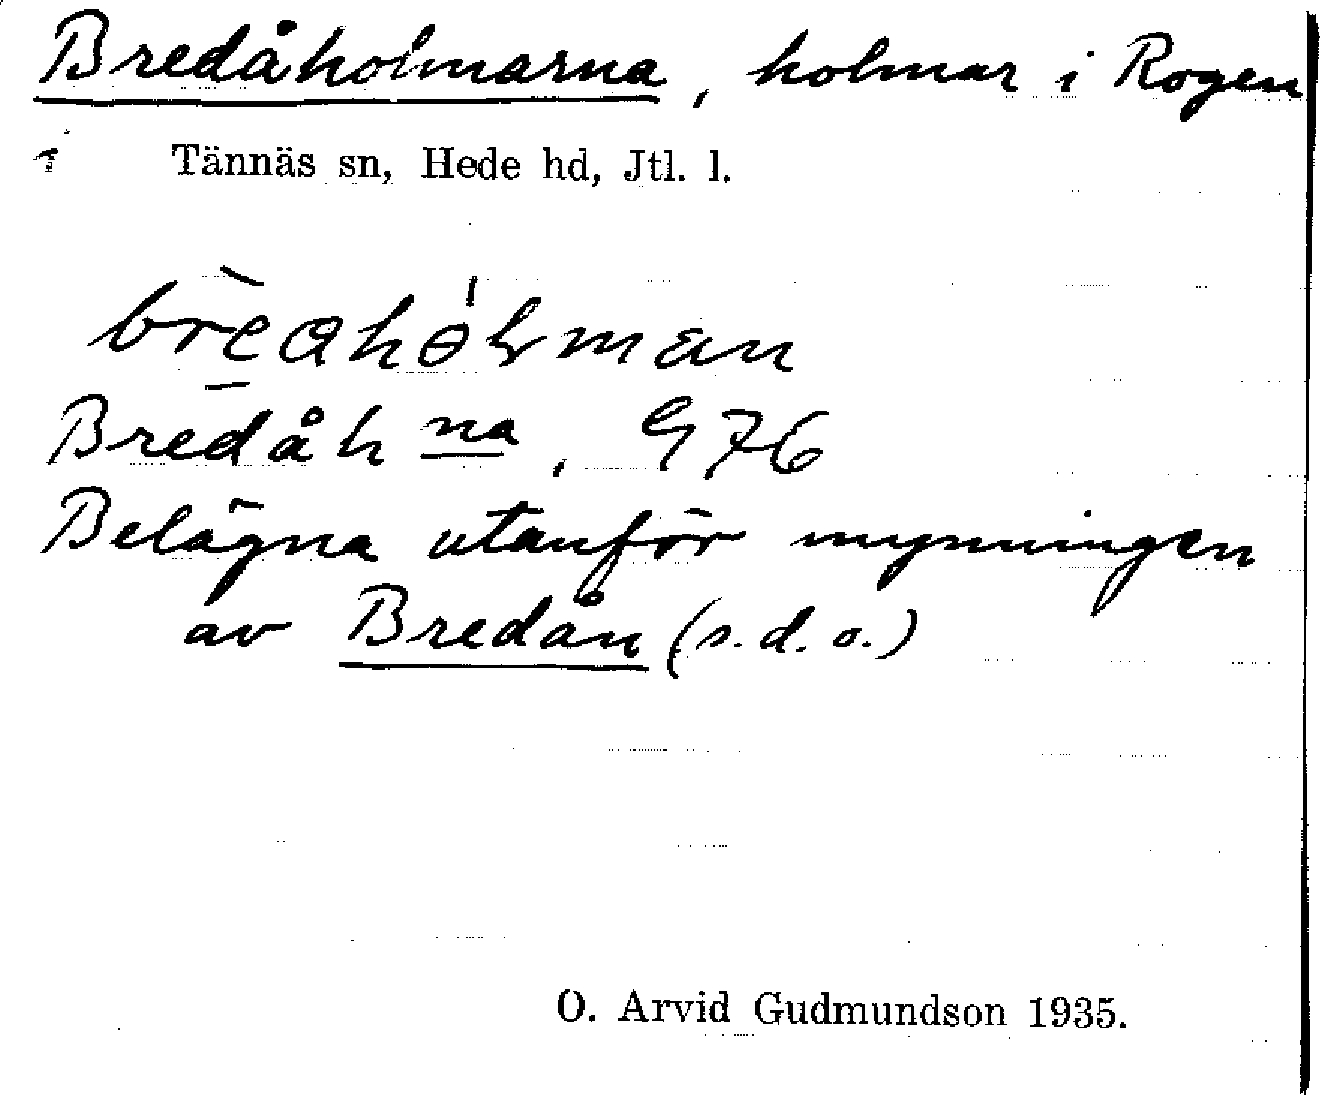 Bredåholmarna, holmar i Rogen
i Tännäs sn, Hede hd, Jtl. l.
brèahólman
Bredåh na, G 76
Belägna utanför mynningen
av Bredån (s.d.o.)
O. Arvid Gudmundson 1935.